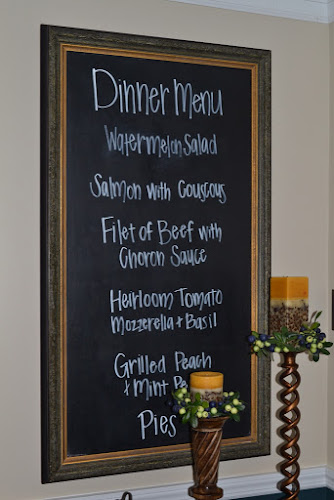 Dinner Menu
Watermelon Salad
Salmon with Couscous
Filet of Beef with
Choron Sauce
Heirloom Tomato
Mozzerella + Basil
Grilled Peach
+ Mint
Pies